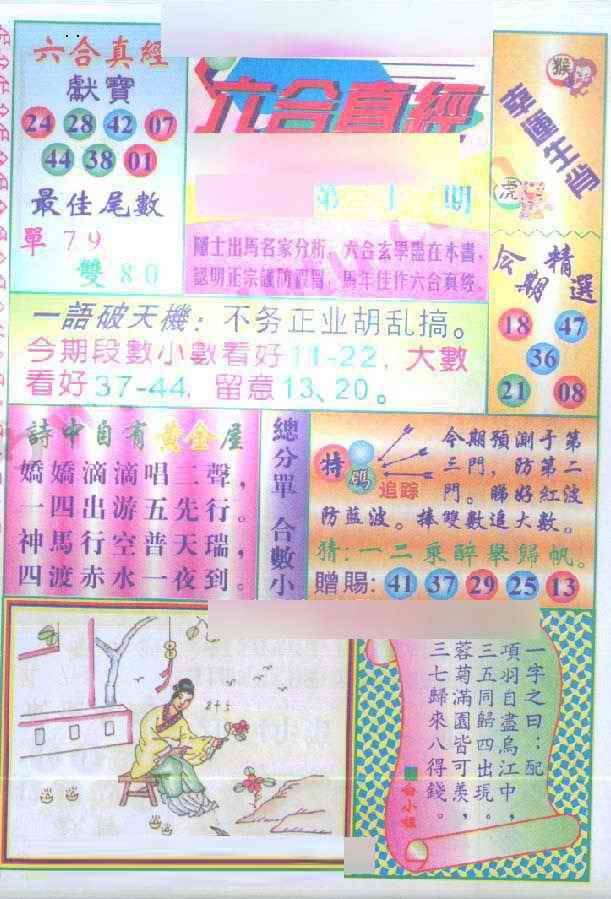 六合真經
獻寶
24 28 42 07
44 38 01
最佳尾數
單79
雙80
六合真經
第 期
隱士出馬名家分析，六合玄學盡在本書，
認明正宗謹防假冒，馬年佳作六合真經。
猴
幸運生肖
虎
今期精選
18 47
36
21 08
一語破天機：不务正业胡乱搞。
今期段數小數看好11-22，大數
看好37-44，留意13、20。
詩中自有黃金屋
嬌嬌滴滴唱二聲，
一四出游五先行。
神馬行空普天瑞，
四渡赤水一夜到。
總分單 合數小
特碼
追踪
今期預測于第
三門，防第二
門。睇好紅波
防藍波。捧雙數追大數。
猜：一二乘醉舉歸帆。
贈賜：41 37 29 25 13
一字之曰：配
項羽自盡烏江中，
三五同歸四出現。
蓉菊滿園皆可羨，
三七歸來八得錢。
白小姐